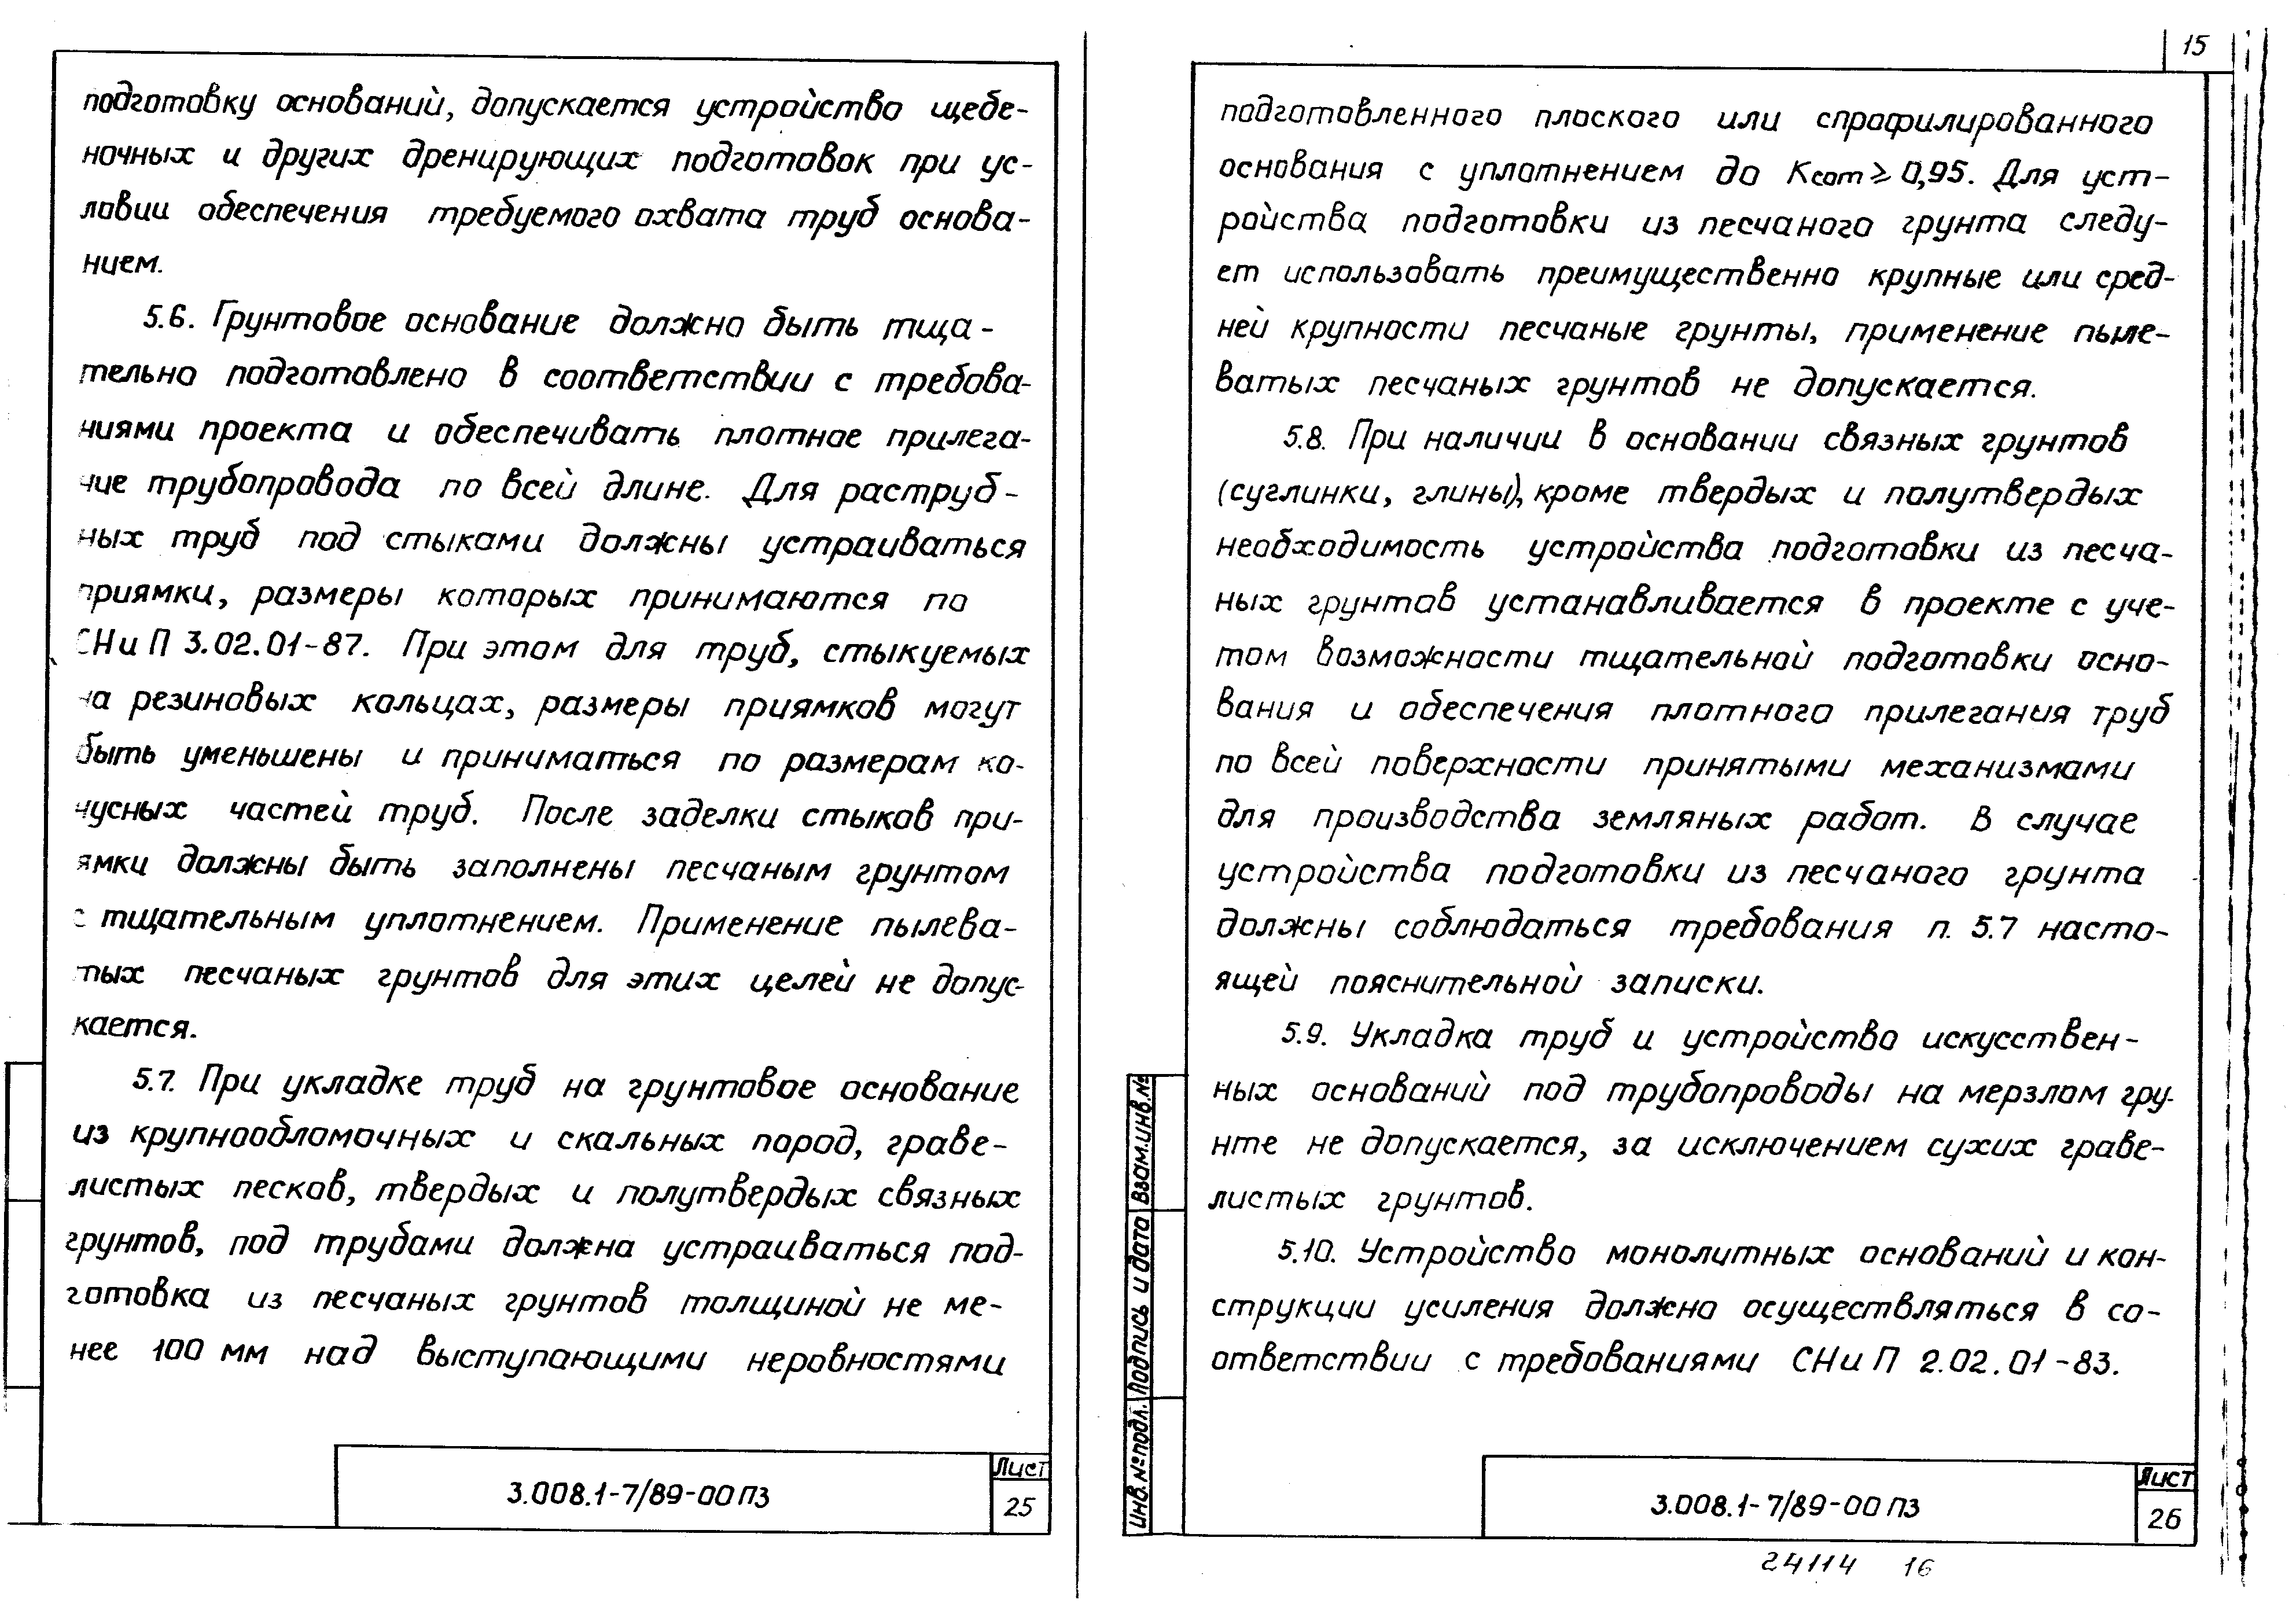 подготовку оснований, допускается устройство щебе-
ночных и других дренирующих подготовок при ус-
ловии обеспечения требуемого охвата труб основа-
нием.
5.6. Грунтовое основание должно быть тща-
тельно подготовлено в соответствии с требова-
ниями проекта и обеспечивать плотное прилега-
ние трубопровода по всей длине. Для раструб-
ных труб под стыками должны устраиваться
приямки, размеры которых принимаются по
СНиП 3.02.01-87. При этом для труб, стыкуемых
на резиновых кольцах, размеры приямков могут
быть уменьшены и приниматься по размерам ко-
нусных частей труб. После заделки стыков при-
ямки должны быть заполнены песчаным грунтом
с тщательным уплотнением. Применение пылева-
тых песчаных грунтов для этих целей не допус-
кается.
5.7. При укладке труб на грунтовое основание
из крупнообломочных и скальных пород, граве-
листых песков, твердых и полутвердых связных
грунтов, под трубами должна устраиваться под-
готовка из песчаных грунтов толщиной не ме-
нее 100 мм над выступающими неровностями
3.008.1-7/89-00ПЗ
Лист
25
15
подготовленного плоского или спрофилированного
основания с уплотнением до Ксот ≥ 0,95. Для уст-
ройства подготовки из песчаного грунта следу-
ет использовать преимущественно крупные или сред-
ней крупности песчаные грунты, применение пыле-
ватых песчаных грунтов не допускается.
5.8. При наличии в основании связных грунтов
(суглинки, глины), кроме твердых и полутвердых
необходимость устройства подготовки из песча-
ных грунтов устанавливается в проекте с уче-
том возможности тщательной подготовки осно-
вания и обеспечения плотного прилегания труб
по всей поверхности принятыми механизмами
для производства земляных работ. В случае
устройства подготовки из песчаного грунта
должны соблюдаться требования п. 5.7 насто-
ящей пояснительной записки.
5.9. Укладка труб и устройство искусствен-
ных оснований под трубопроводы на мерзлом гру-
нте не допускается, за исключением сухих граве-
листых грунтов.
5.10. Устройство монолитных оснований и кон-
струкции усиления должно осуществляться в со-
ответствии с требованиями СНиП 2.02.01-83.
Инв.№подл.
Подпись и дата
Взам.инв.№
3.008.1-7/89-00ПЗ
Лист
26
24114 16